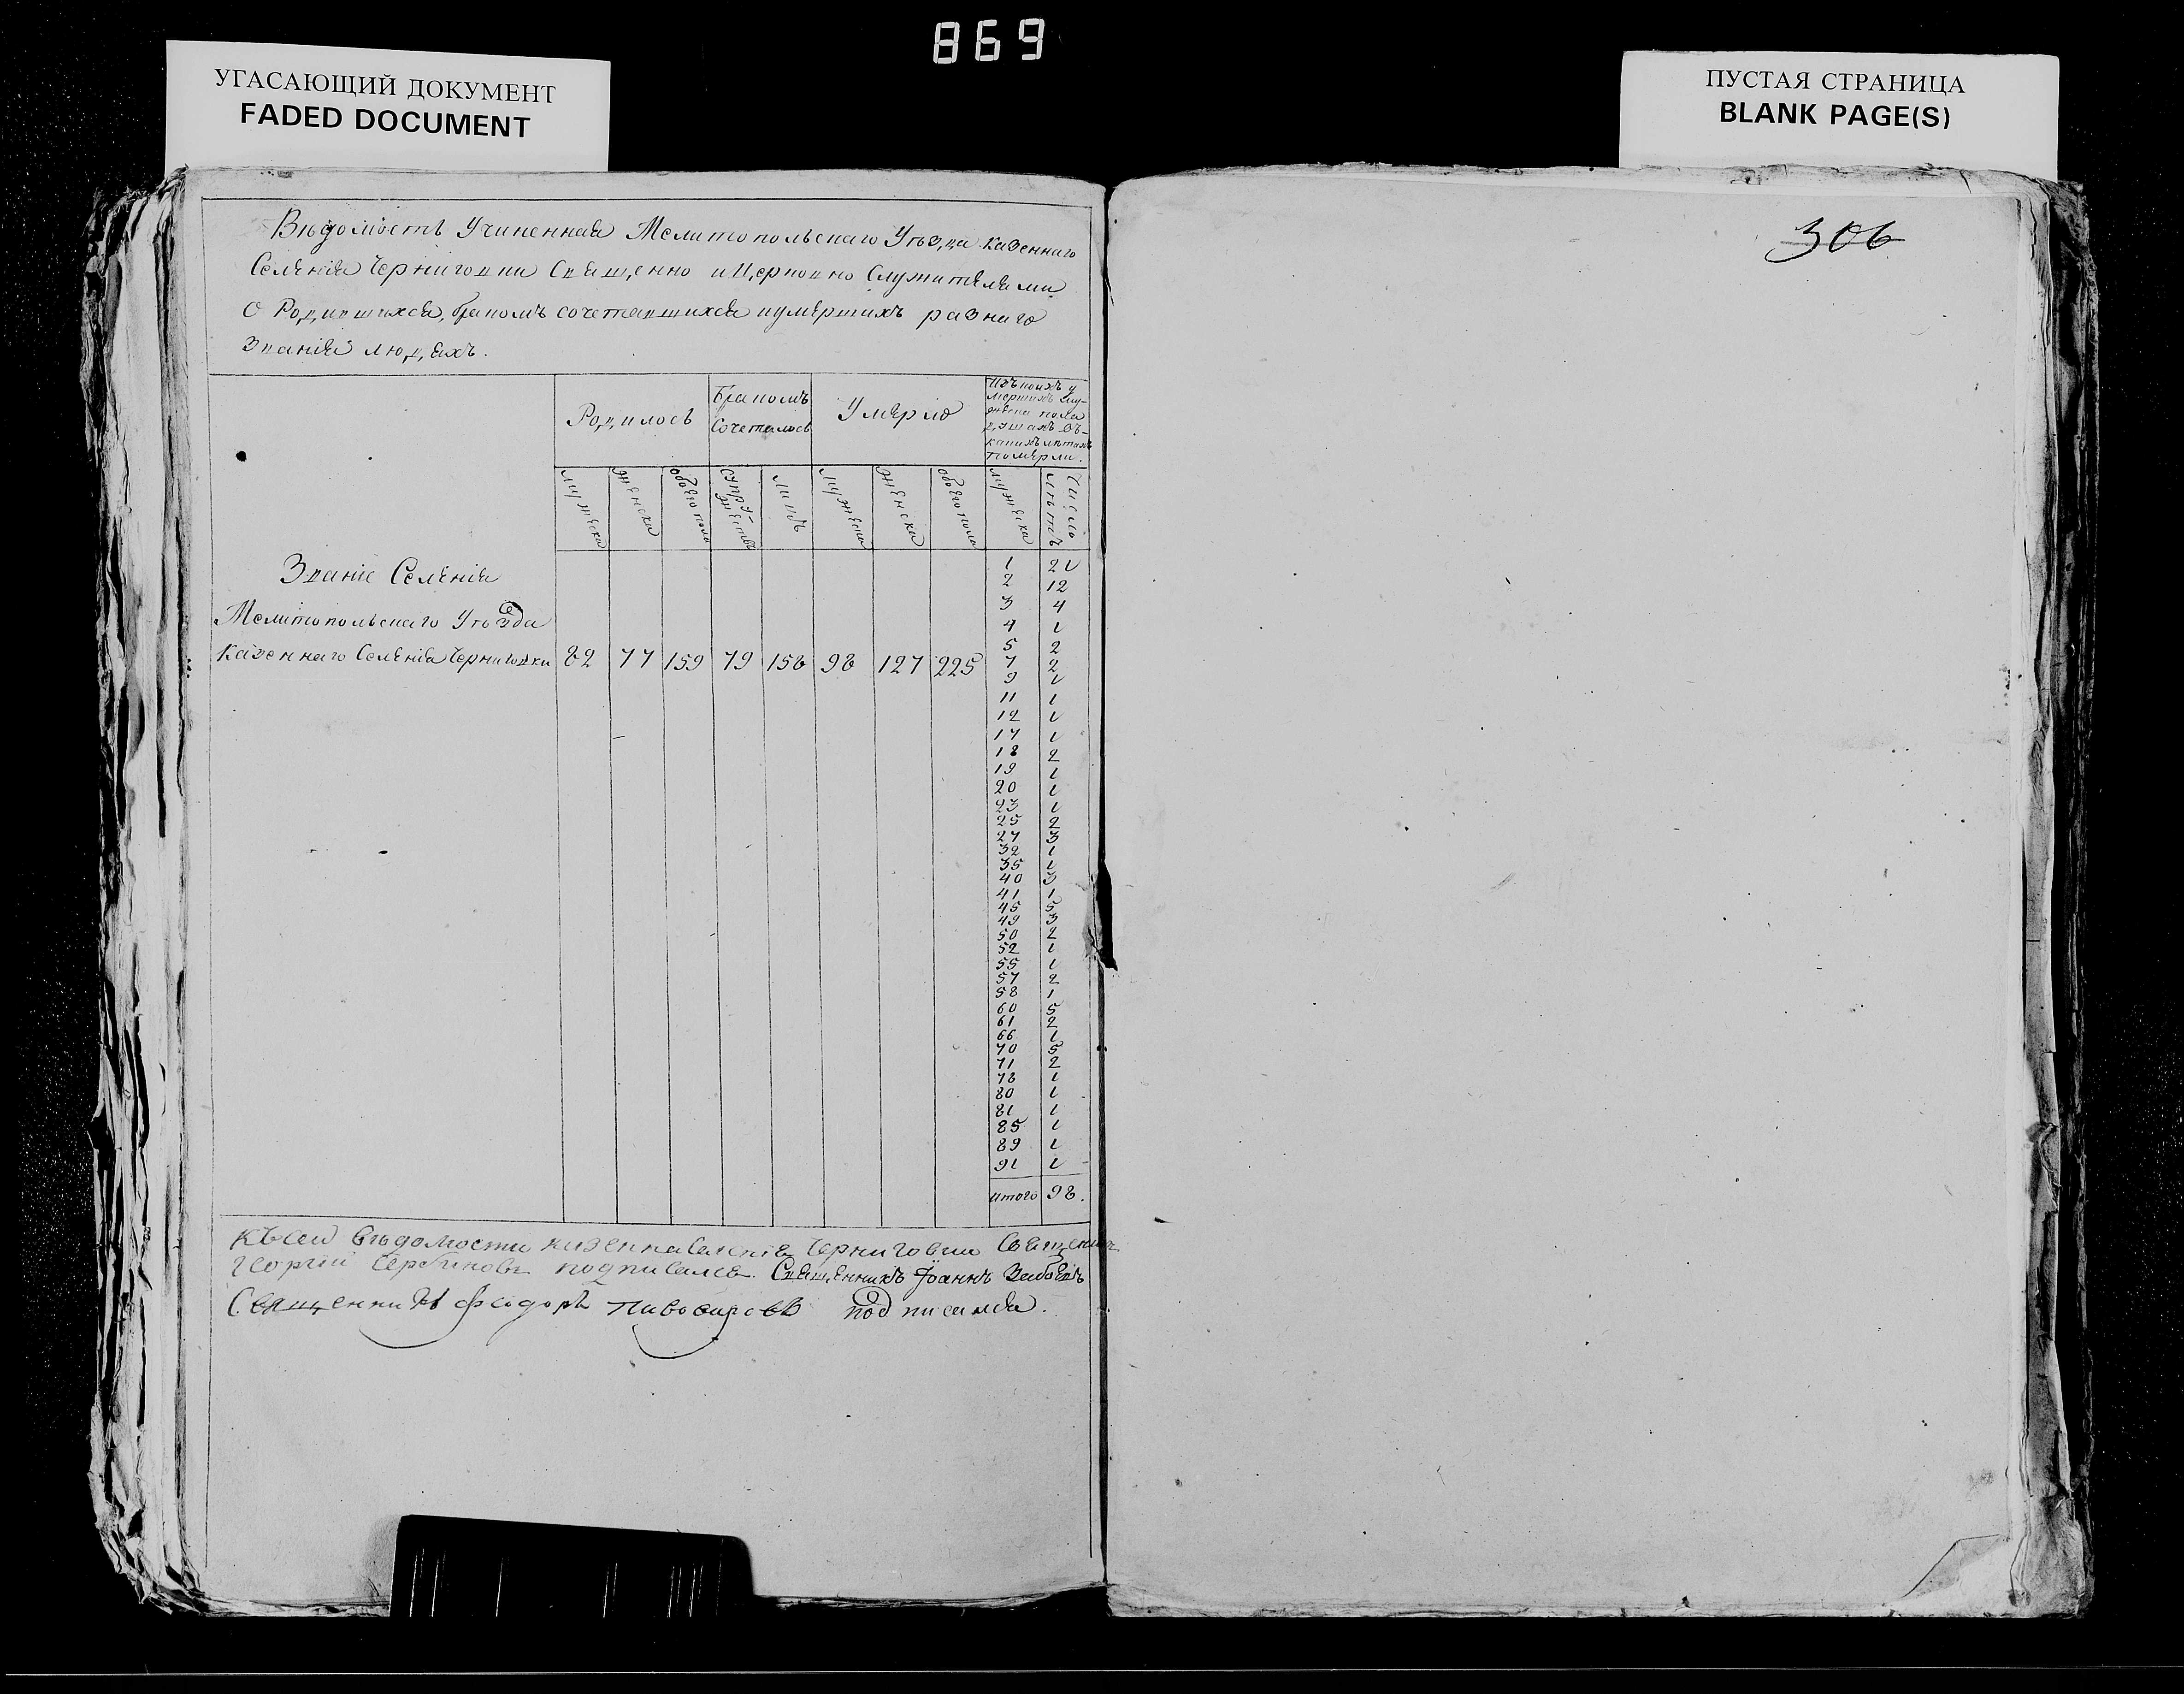 869
УГАСАЮЩИЙ ДОКУМЕНТ
FADED DOCUMENT
ПУСТАЯ СТРАНИЦА
BLANK PAGE(S)
306
Вѣдомость Учиненная Мелитопольскаго Уѣзда казеннаго
Селенія Черниговки Священно и Церковно Служителями
О Родившихся, бракомъ сочетавшихся и умершихъ разнаго
Званія людяхъ.
Родилось
Бракомъ
Сочеталось
Умерло
мужеска
женска
обоего пола
супружествъ
лицъ
мужеска
женска
обоего пола
мужеска
Число лѣтъ
Званіе Селенія
Мелитопольскаго Уѣзда
казеннаго Селенія Черниговки 82 77 159 79 158 98 127 225
1 21
2 12
3 4
4 1
5 2
7 2
9 1
11 1
12 1
17 1
18 2
19 1
20 1
23 1
25 2
27 3
32 1
35 1
40 3
41 1
45 5
49 3
50 2
52 1
55 1
57 2
58 1
60 5
61 2
66 1
70 5
71 2
78 1
80 1
81 1
85 1
89 1
91 1
итого 98.
Къ сей вѣдомости Черниговки Священник
Георгій подписался Священникъ Іоаннъ
Священникъ Феодоръ подписался.